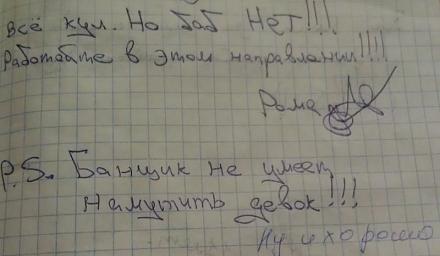 Всё кул. Но баб нет!!!
Работайте в этом направлении!!!!
Рома
P.S. Банщик не умеет
намутить девок!!!
Ну и хорошо